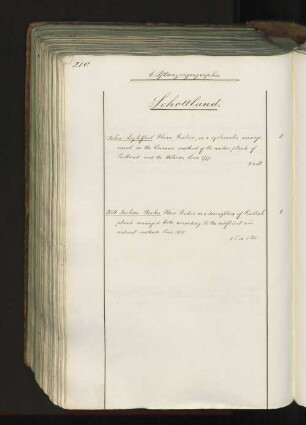 210
6. Pflanzengeographie
Schottland.
John Lightfoot Flora Scotica, or a systematic arrange-
ment in the Linnaean method of the native plants of
Scotland and the Hebrides. Lond. 1777.
2 vol
8
Will. Jackson Hooker Flora Scotica or a description of Scottish
plants arranged both according to the artificial and
natural methods. Lond. 1821.
8